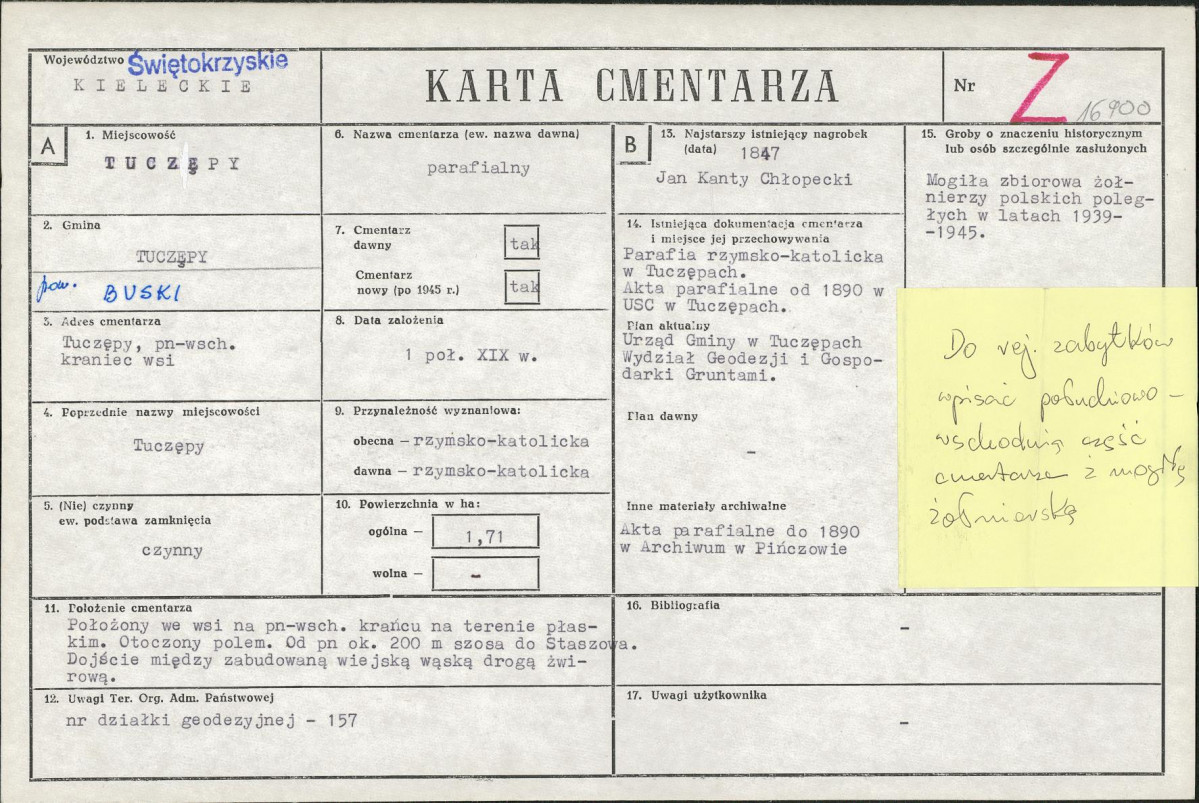 Województwo Świętokrzyskie
KIELECKIE
KARTA CMENTARZA
Nr Z 16900
A
1. Miejscowość
TUCZĘPY
2. Gmina
TUCZĘPY
pow. BUSKI
3. Adres cmentarza
Tuczępy, pn-wsch.
kraniec wsi
4. Poprzednie nazwy miejscowości
Tuczępy
5. (Nie) czynny
ew. podstawa zamknięcia
czynny
6. Nazwa cmentarza (ew. nazwa dawna)
parafialny
7. Cmentarz
dawny tak
Cmentarz
nowy (po 1945 r.) tak
8. Data założenia
1 poł. XIX w.
9. Przynależność wyznaniowa:
obecna – rzymsko-katolicka
dawna – rzymsko-katolicka
10. Powierzchnia w ha:
ogólna – 1,71
wolna – -
11. Położenie cmentarza
Położony we wsi na pn-wsch. krańcu na terenie płas-
kim. Otoczony polem. Od pn ok. 200 m szosa do Staszowa.
Dojście między zabudowaną wiejską wąską drogą żwi-
rową.
12. Uwagi Ter. Org. Adm. Państwowej
nr działki geodezyjnej - 157
B
13. Najstarszy istniejący nagrobek
(data) 1847
Jan Kanty Chłopecki
14. Istniejąca dokumentacja cmentarza
i miejsce jej przechowywania
Parafia rzymsko-katolicka
w Tuczępach.
Akta parafialne od 1890 w
USC w Tuczępach.
Plan aktualny
Urząd Gminy w Tuczępach
Wydział Geodezji i Gospo-
darki Gruntami.
Plan dawny
-
Inne materiały archiwalne
Akta parafialne do 1890
w Archiwum w Pińczowie
15. Groby o znaczeniu historycznym
lub osób szczególnie zasłużonych
Mogiła zbiorowa żoł-
nierzy polskich poleg-
łych w latach 1939-
-1945.
Do rej. zabytków
wpisać południowo –
wschodnią część
cmentarza z mogiłą
żołnierską
16. Bibliografia
-
17. Uwagi użytkownika
-